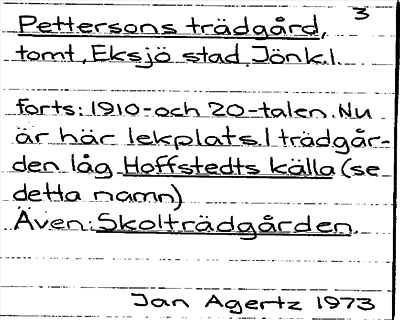 3
Pettersons trädgård,
tomt, Eksjö stad, Jönk.l.
forts: 1910- och 20-talen. Nu
är här lekplats. I trädgår-
den låg Hoffstedts källa (se
detta namn)
Även: Skolträdgården.
Jan Agertz 1973